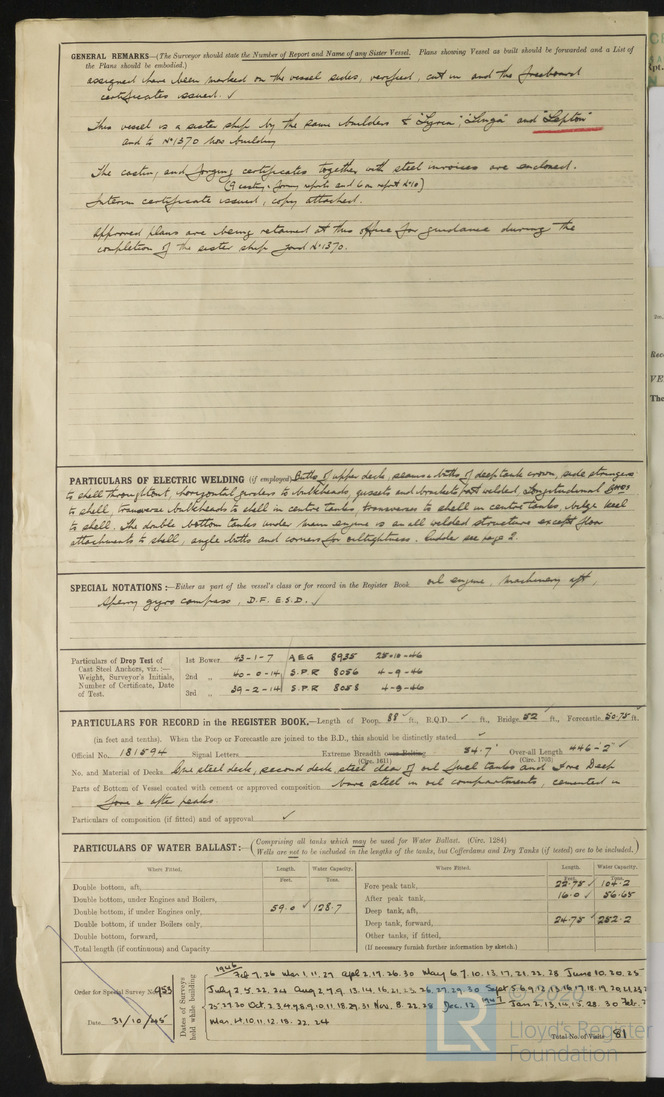 GENERAL REMARKS—(The Surveyor should state the Number of Report and Name of any Sister Vessel. Plans showing Vessel as built should be forwarded and a List of
the Plans should be embodied.)
assigned have been marked on the vessel sides, verified, cut in and the freeboard
certificates issued. ✓
This vessel is a sister ship by the same builders to "Lyria", "Linga" and "Lepton"
and to No 1370 now building
The casting and forging certificates together with steel invoices are enclosed.
(9 casting & forging reports and 6 on report No 10)
Interim certificate issued, copy attached.
Approved plans are being retained at this office for guidance during the
completion of the sister ship yard No 1370.
PARTICULARS OF ELECTRIC WELDING (if employed) Butts of upper deck, seams & butts of deep tank crown, side stringers
to shell throughout, horizontal girders to bulkheads, gussets and brackets part welded, longitudinal
to shell, transverse bulkheads to shell in centre tanks, transverses to shell in centre tanks, bilge keel
to shell. The double bottom tanks under main engine is an all welded structure except floor
attachments to shell, angle butts and corners for oiltightness. Rudder see page 2.
SPECIAL NOTATIONS:—Either as part of the vessel's class or for record in the Register Book oil engine, machinery aft,
Sperry gyro compass, D.F. E.S.D. ✓
Particulars of Drop Test of
Cast Steel Anchors, viz.:—
Weight, Surveyor's Initials,
Number of Certificate, Date
of Test.
1st Bower 43-1-7 AEG 8935 28-10-46
2nd „ 40-0-14 S.P.R 8056 4-9-46
3rd „ 39-2-14 S.P.R 8058 4-9-46
PARTICULARS FOR RECORD in the REGISTER BOOK.—Length of Poop 88 ✓ ft., R.Q.D. ✓ ft., Bridge 52 ft., Forecastle 50.75 ft.
(in feet and tenths). When the Poop or Forecastle are joined to the B.D., this should be distinctly stated ✓
Official No. 181594 Signal Letters Extreme Breadth over Belting (Circ. 1611) 54.7' Over-all Length (Circ. 1703) 446-2" ✓
No. and Material of Decks One steel deck, second deck, steel clear of oil fuel tanks and Fore Deep
Parts of Bottom of Vessel coated with cement or approved composition bare steel in oil compartments, cemented in
fore & after peaks.
Particulars of composition (if fitted) and of approval ✓
PARTICULARS OF WATER BALLAST:— (Comprising all tanks which may be used for Water Ballast. (Circ. 1284)
Wells are not to be included in the lengths of the tanks, but Cofferdams and Dry Tanks (if tested) are to be included.)
Where Fitted. Length. Water Capacity. Where Fitted. Length. Water Capacity.
Feet. Tons. Feet. Tons.
Double bottom, aft,
Double bottom, under Engines and Boilers,
Double bottom, if under Engines only, 59.0 ✓ 128.7
Double bottom, if under Boilers only,
Double bottom, forward,
Total length (if continuous) and Capacity
Fore peak tank, 22.75 ✓ 104.2
After peak tank, 16.0 ✓ 56.65
Deep tank, aft,
Deep tank, forward, 24.75 ✓ 252.2
Other tanks, if fitted,
(If necessary furnish further information by sketch.)
Order for Special Survey No. 953
Date 31/10/45
Dates of Surveys held while building
1946
Feb 7. 26 Mar 1. 11. 27. Apl 2. 17. 26. 30 May 6. 7. 10. 13. 17. 21. 22. 28 June 10. 20. 25
July 2. 5. 22. 24 Aug 2. 7. 9. 13. 14. 16. 21. 23. 26. 27. 29. 30 Sept 5. 6. 9. 12. 13. 16. 17. 18. 19. 20
25. 27. 30 Oct. 2. 3. 4. 7. 8. 9. 10. 11. 18. 29. 31 Nov. 8. 22. 28 Dec. 12. 1947 Jan 2. 13. 14. 15. 28. 30 Feb.
Mar. 4. 10. 11. 12. 18. 22. 24
Total No. of Visits 81
LR
© 2020
Lloyd's Register
Foundation